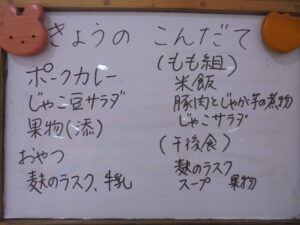 きょうの こんだて
ポークカレー
じゃこ豆サラダ
果物(添)
おやつ
麩のラスク、牛乳
(もも組)
米飯
豚肉とじゃが芋の煮物
じゃこサラダ
(午後食)
麩のラスク
スープ 果物